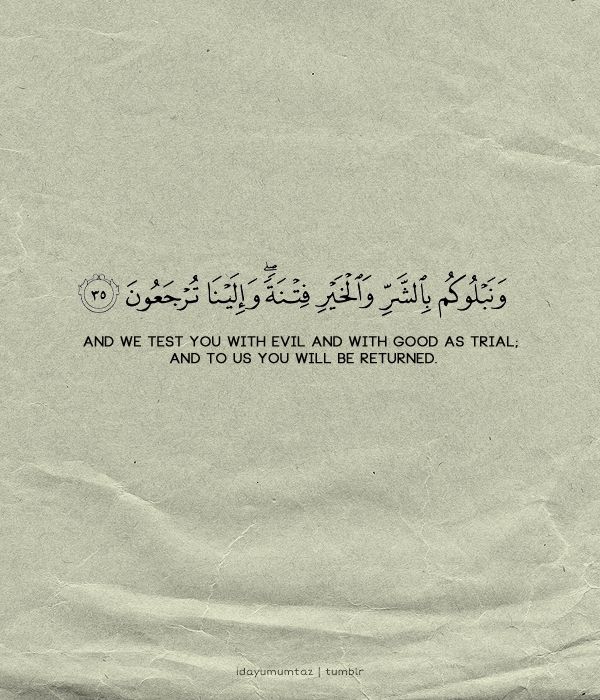 وَنَبْلُوكُم بِٱلشَّرِّ وَٱلْخَيْرِ فِتْنَةً ۖ وَإِلَيْنَا تُرْجَعُونَ ٣٥
AND WE TEST YOU WITH EVIL AND WITH GOOD AS TRIAL;
AND TO US YOU WILL BE RETURNED.
idayumumtaz | tumblr